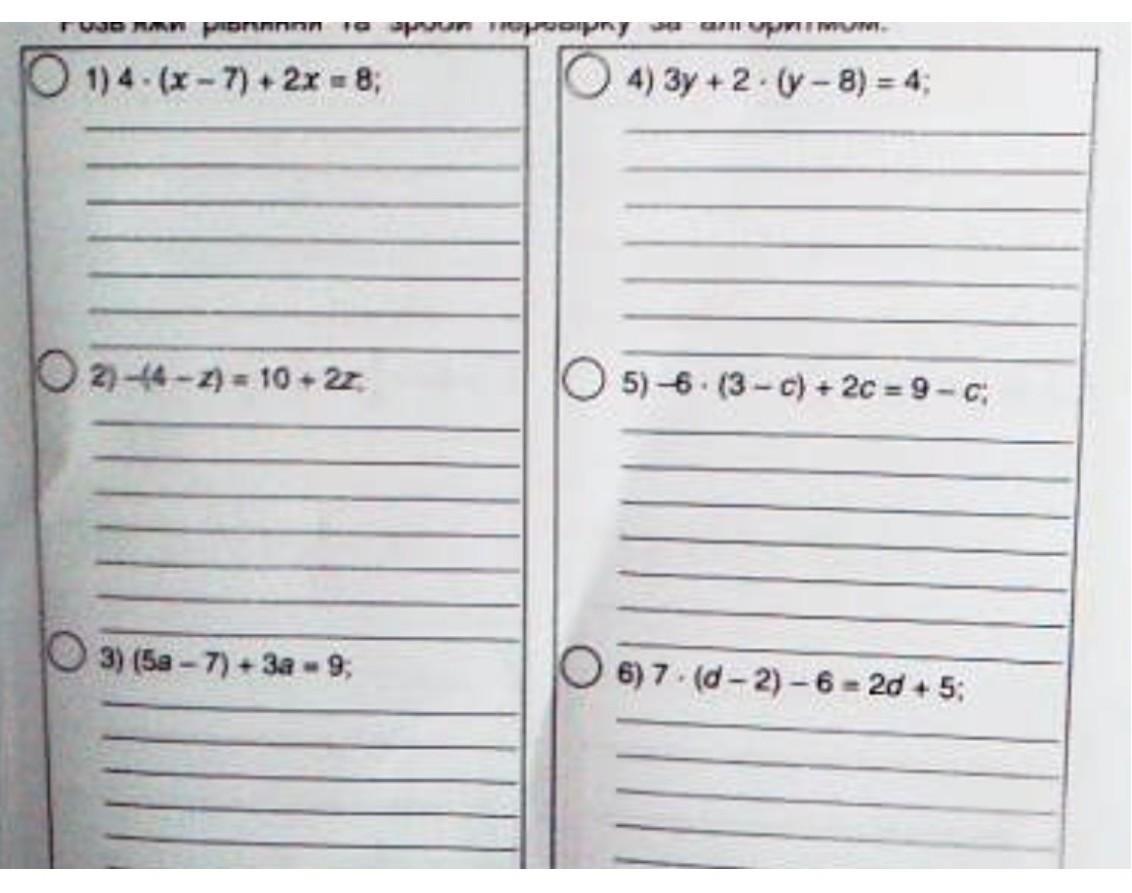 Розв'яжи рівняння та зроби перевірку за алгоритмом.
1) 4 · (x – 7) + 2x = 8;
2) –(4 – z) = 10 + 2z;
3) (5a – 7) + 3a = 9;
4) 3y + 2 · (y – 8) = 4;
5) –6 · (3 – c) + 2c = 9 – c;
6) 7 · (d – 2) – 6 = 2d + 5;